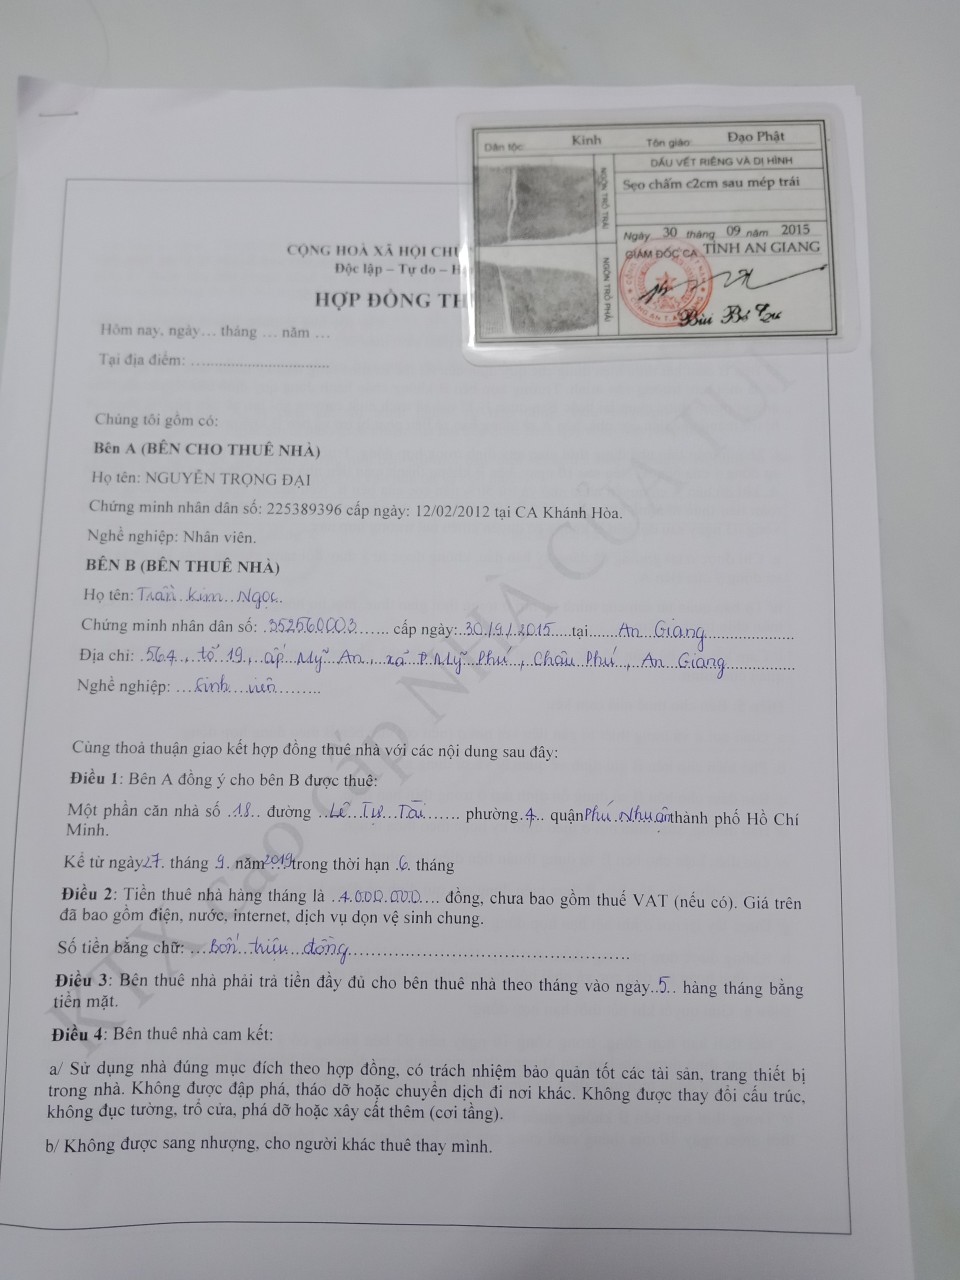 Dân tộc: Kinh Tôn giáo: Đạo Phật
DẤU VẾT RIÊNG VÀ DỊ HÌNH
Sẹo chấm c2cm sau mép trái
NGÓN TRỎ TRÁI
Ngày 30 tháng 09 năm 2015
GIÁM ĐỐC CA TỈNH AN GIANG
NGÓN TRỎ PHẢI
Bùi Bé Tư
CỘNG HOÀ XÃ HỘI CHỦ
Độc lập – Tự do – H
HỢP ĐỒNG TH
Hôm nay, ngày... tháng ... năm ...
Tại địa điểm: ..............................
Chúng tôi gồm có:
Bên A (BÊN CHO THUÊ NHÀ)
Họ tên: NGUYỄN TRỌNG ĐẠI
Chứng minh nhân dân số: 225389396 cấp ngày: 12/02/2012 tại CA Khánh Hòa.
Nghề nghiệp: Nhân viên.
BÊN B (BÊN THUÊ NHÀ)
Họ tên: Trần Kim Ngọc
Chứng minh nhân dân số: 352560003 cấp ngày: 30/9/2015 tại An Giang
Địa chỉ: 564, tổ 19, ấp Mỹ An, xã Mỹ Phú, Châu Phú, An Giang
Nghề nghiệp: Sinh viên
Cùng thoả thuận giao kết hợp đồng thuê nhà với các nội dung sau đây:
Điều 1: Bên A đồng ý cho bên B được thuê:
Một phần căn nhà số 18 đường Lê Tự Tài phường 4 quận Phú Nhuận thành phố Hồ Chí
Minh.
Kể từ ngày 27 tháng 9 năm 2019 trong thời hạn 6 tháng
Điều 2: Tiền thuê nhà hàng tháng là 4.000.000 đồng, chưa bao gồm thuế VAT (nếu có). Giá trên
đã bao gồm điện, nước, internet, dịch vụ dọn vệ sinh chung.
Số tiền bằng chữ: Bốn triệu đồng
Điều 3: Bên thuê nhà phải trả tiền đầy đủ cho bên thuê nhà theo tháng vào ngày 5 hàng tháng bằng
tiền mặt.
Điều 4: Bên thuê nhà cam kết:
a/ Sử dụng nhà đúng mục đích theo hợp đồng, có trách nhiệm bảo quản tốt các tài sản, trang thiết bị
trong nhà. Không được đập phá, tháo dỡ hoặc chuyển dịch đi nơi khác. Không được thay đổi cấu trúc,
không đục tường, trổ cửa, phá dỡ hoặc xây cất thêm (cơi tầng).
b/ Không được sang nhượng, cho người khác thuê thay mình.
KTX cao cấp NHÀ CỦA TUI